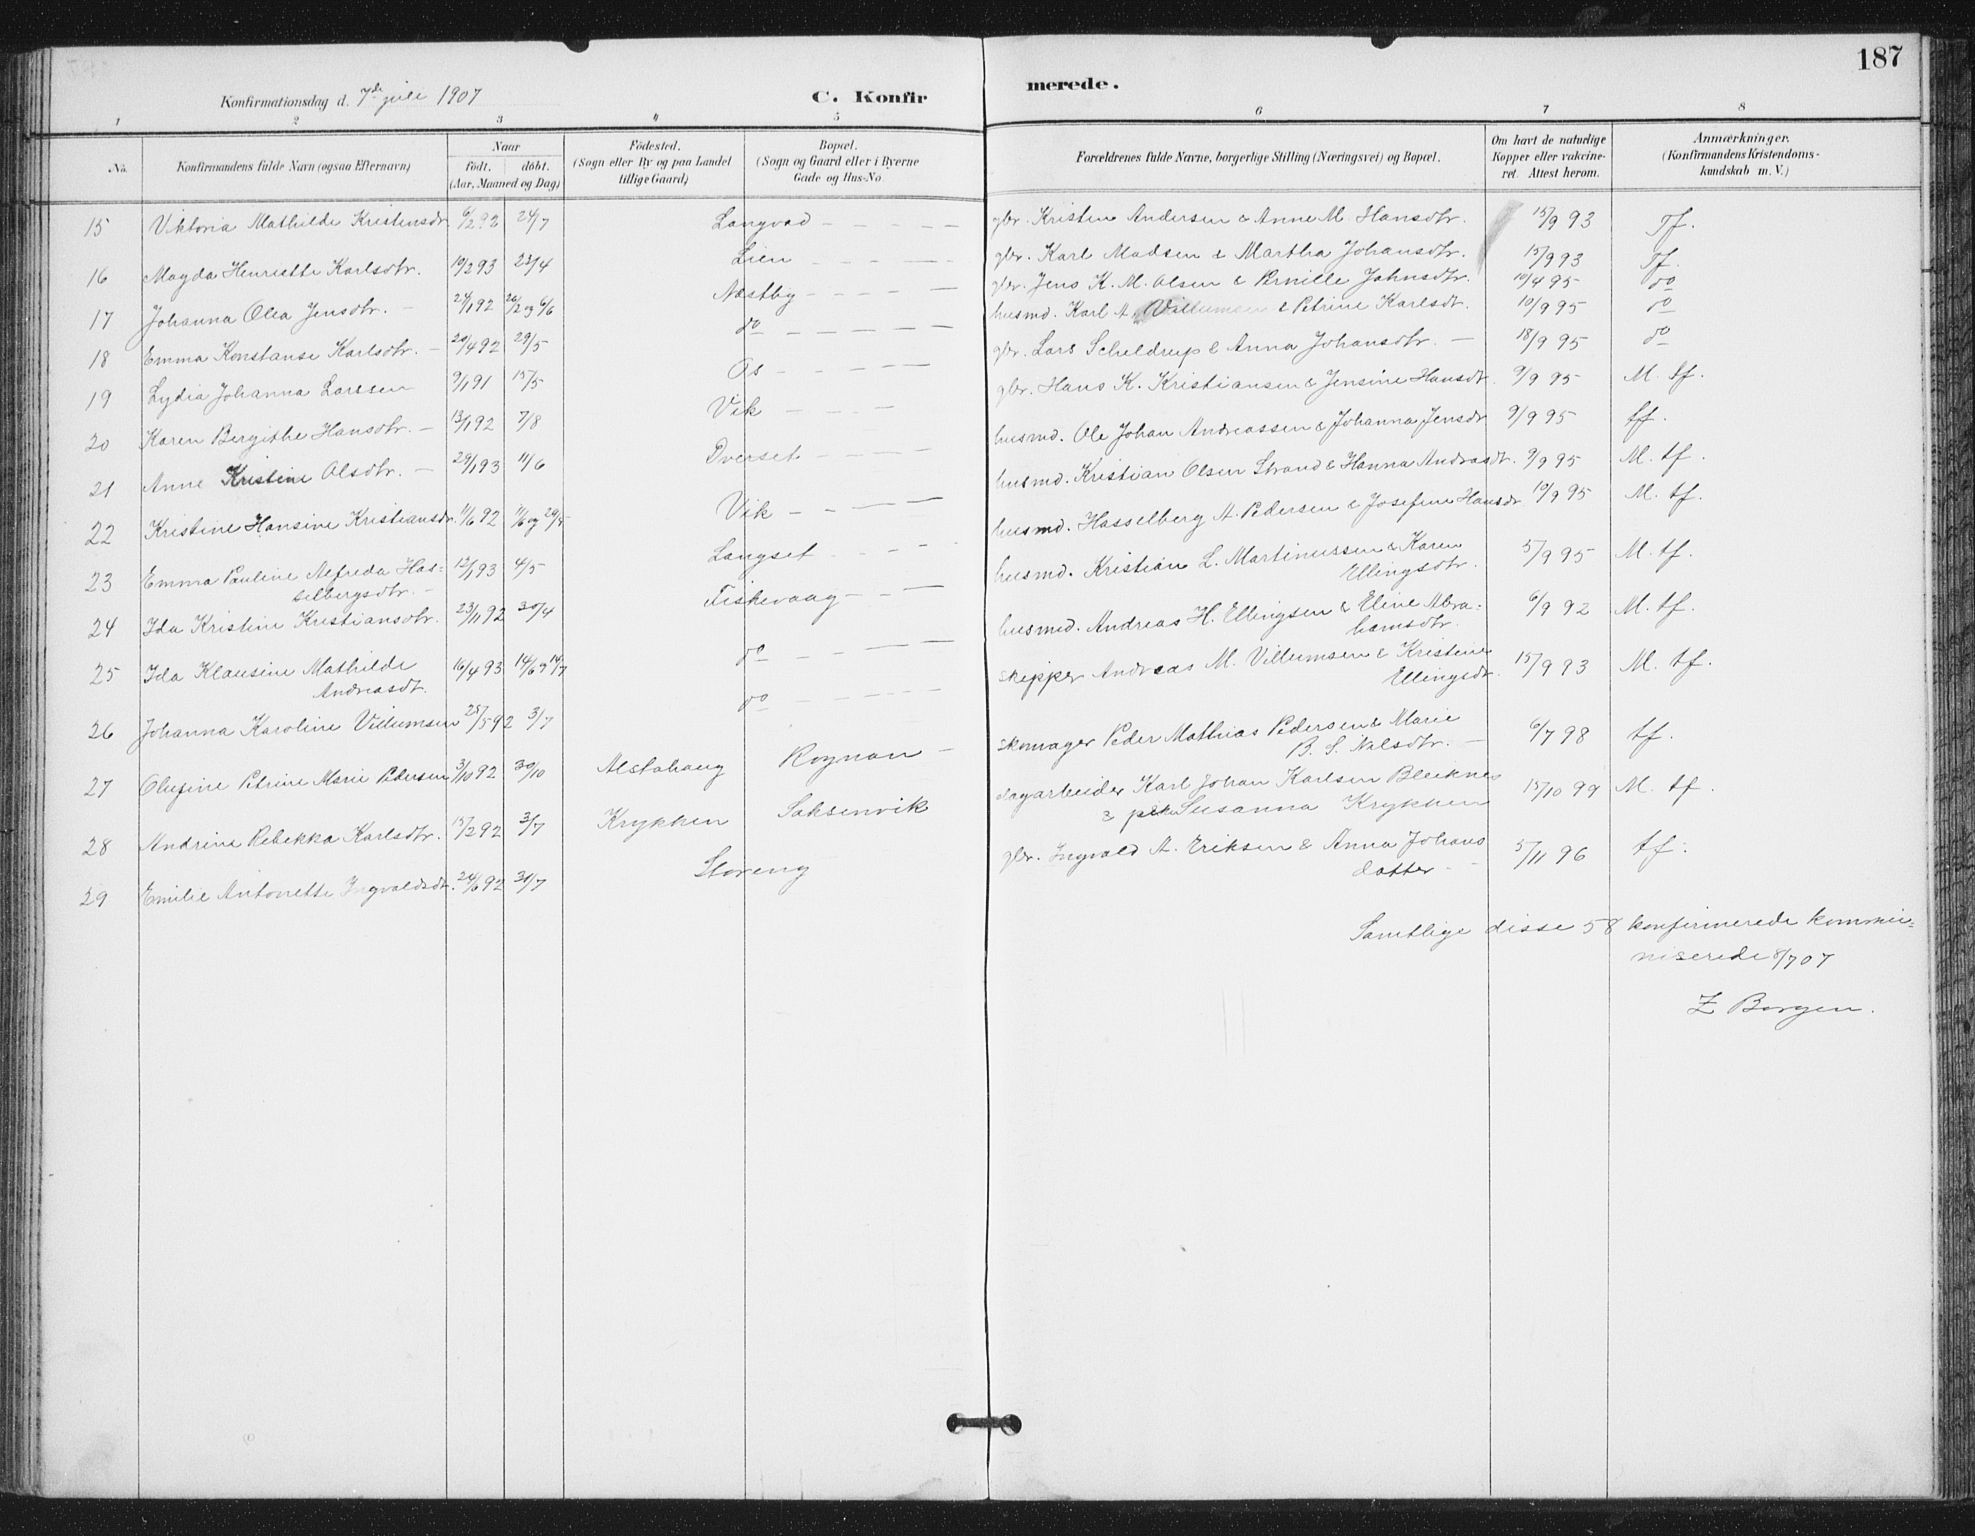 187
Konfirmationsdag d. 7de juli 1907
C. Konfir
merede.
1 2 3 4 5 6 7 8
No.
Konfirmandens fulde Navn (ogsaa Efternavn)
Naar
födt. döbt.
(Aar, Maaned og Dag)
Födested.
(Sogn eller By og paa Landet
tillige Gaard)
Bopæl.
(Sogn og Gaard eller i Byerne
Gade og Hus-No.
Forældrenes fulde Navne, borgerlige Stilling (Næringsvei) og Bopæl.
Om havt de naturlige
Kopper eller vakcine-
ret. Attest herom.
Anmærkninger.
(Konfirmandens Kristendoms-
kundskab m. V.)
15 Viktoria Mathilde Kristensdtr. 6/2 92 24/7 Langvad gbr. Kristen Andersen & Anne M. Hansdtr. 15/9 93 Tf.
16 Magda Henriette Karlsdtr. 19/2 93 23/4 Lien gbr. Karl Madsen & Martha Johansdtr. 15/9 93 Tf.
17 Johanna Olea Jensdtr. 24/1 92 Næstby gbr. Jens K. M. Olsen & Pernille Johnsdtr. 10/4 95 do
18 Emma Konstanse Karlsdtr. 20/4 92 29/5 do husmd. Karl A. Villumsen & Petrine Karlsdt. 10/9 95 do
19 Lydia Johanna Larssen 9/1 91 15/5 Os gbr. Lars Scheldrup & Anna Johansdtr. 18/9 95 do
20 Karen Bergithe Hansdtr. 13/1 92 7/8 Vik gbr. Hans K. Kristiansen & Jensine Hansdt. 9/9 95 M. tf.
21 Anne Kristine Olsdtr. 29/1 93 11/6 Dverset husmd. Ole Johan Andreassen & Johanna Jensdtr 9/9 95 tf.
22 Kristine Hansine Kristiansdtr. 11/6 92 Vik husmd. Kristian Olsen Strand & Hanna Andrasdt. 9/9 95 M. tf.
23 Emma Pauline Alfreda Has-
selbergsdtr. 12/1 93 4/5 Langset husmd. Hasselberg A. Pedersen & Josefine Hansdr 19/9 95 M. tf.
24 Ida Kristine Kristiansdtr. 23/11 92 30/4 Fiskevaag husmd. Kristian L. Martinussen & Karen
Ellingsdtr. 5/9 95 M. tf.
25 Ida Klausine Mathilde
Andreasdt. 16/4 93 do husmd. Andreas H. Ellingsen & Eline Abra-
hamsdtr. 6/9 92 M. tf.
26 Johanna Karoline Villumsen 28/5 92 3/7 do skipper Andreas M. Villumsen & Kristine
Ellingsdt. 15/9 93 M. tf.
27 Olufine Petrine Marie Pedersen 3/10 92 30/10 Alstahaug Rognan skomager Peder Mathias Pedersen & Marie
B. S. Nilsdtr. 6/7 98 tf.
28 Andrine Rebekka Karlsdtr. 15/2 92 3/7 Krykken Saksenvik dagarbeider Karl Johan Karlsen Bleiknes
& pike Susanna Krykken 15/10 99 M. tf.
29 Emilie Antonette Ingvaldsdt. 24/6 92 31/7 Storeng gbr. Ingvald A. Eriksen & Anna Johans
datter 5/11 96 tf.
Samtlige disse 58 konfirmerede kommu-
niserede 8/7 07
Z Borgen.